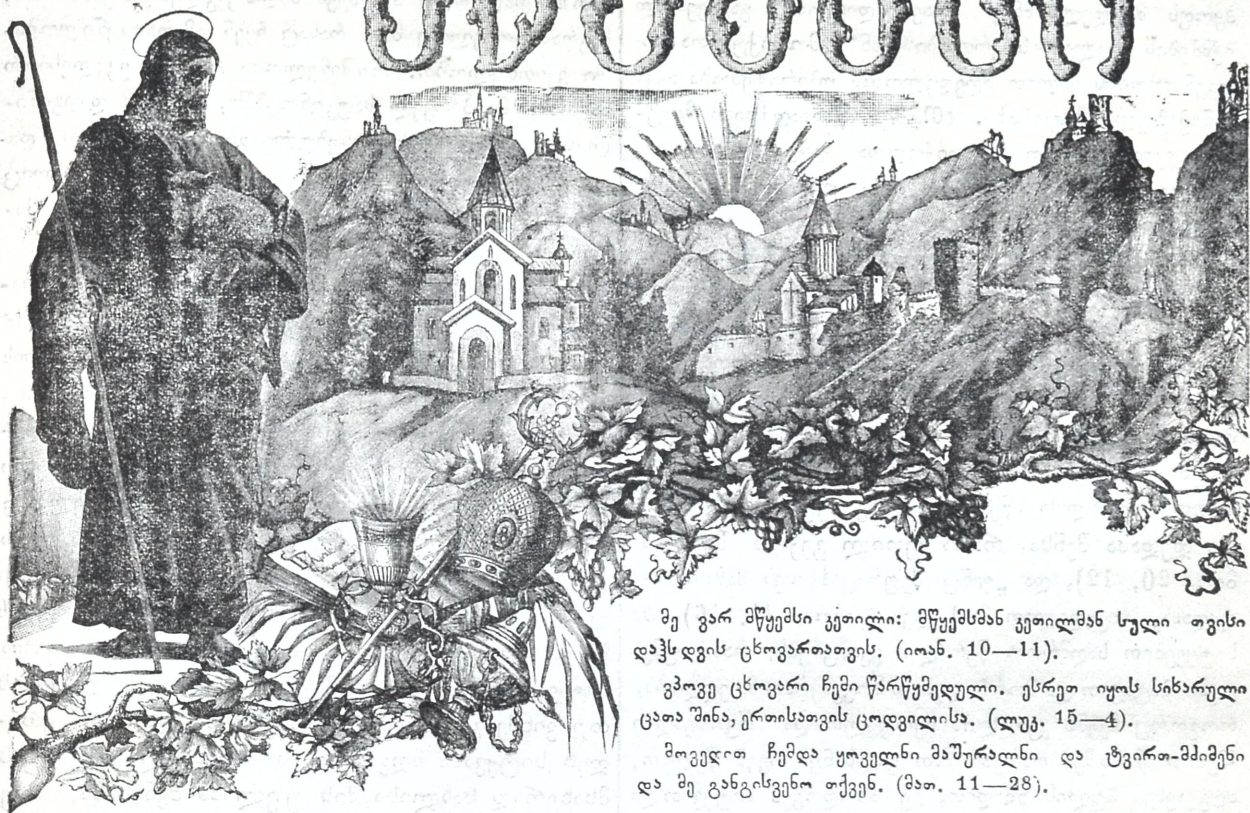 მე ვარ მწყემსი კეთილი: მწყემსმან კეთილმან სული თვისი
დაჰსდვის ცხოვართათვის. (იოან. 10—11).
ვჰპოვე ცხოვარი ჩემი წარწყმედული. ესრეთ იყოს სიხარული
ცათა შინა, ერთისათვის ცოდვილისა. (ლუკ. 15—4).
მოვედით ჩემდა ყოველნი მაშურალნი და ტვირთ-მძიმენი
და მე განგისვენო თქვენ. (მათ. 11—28).